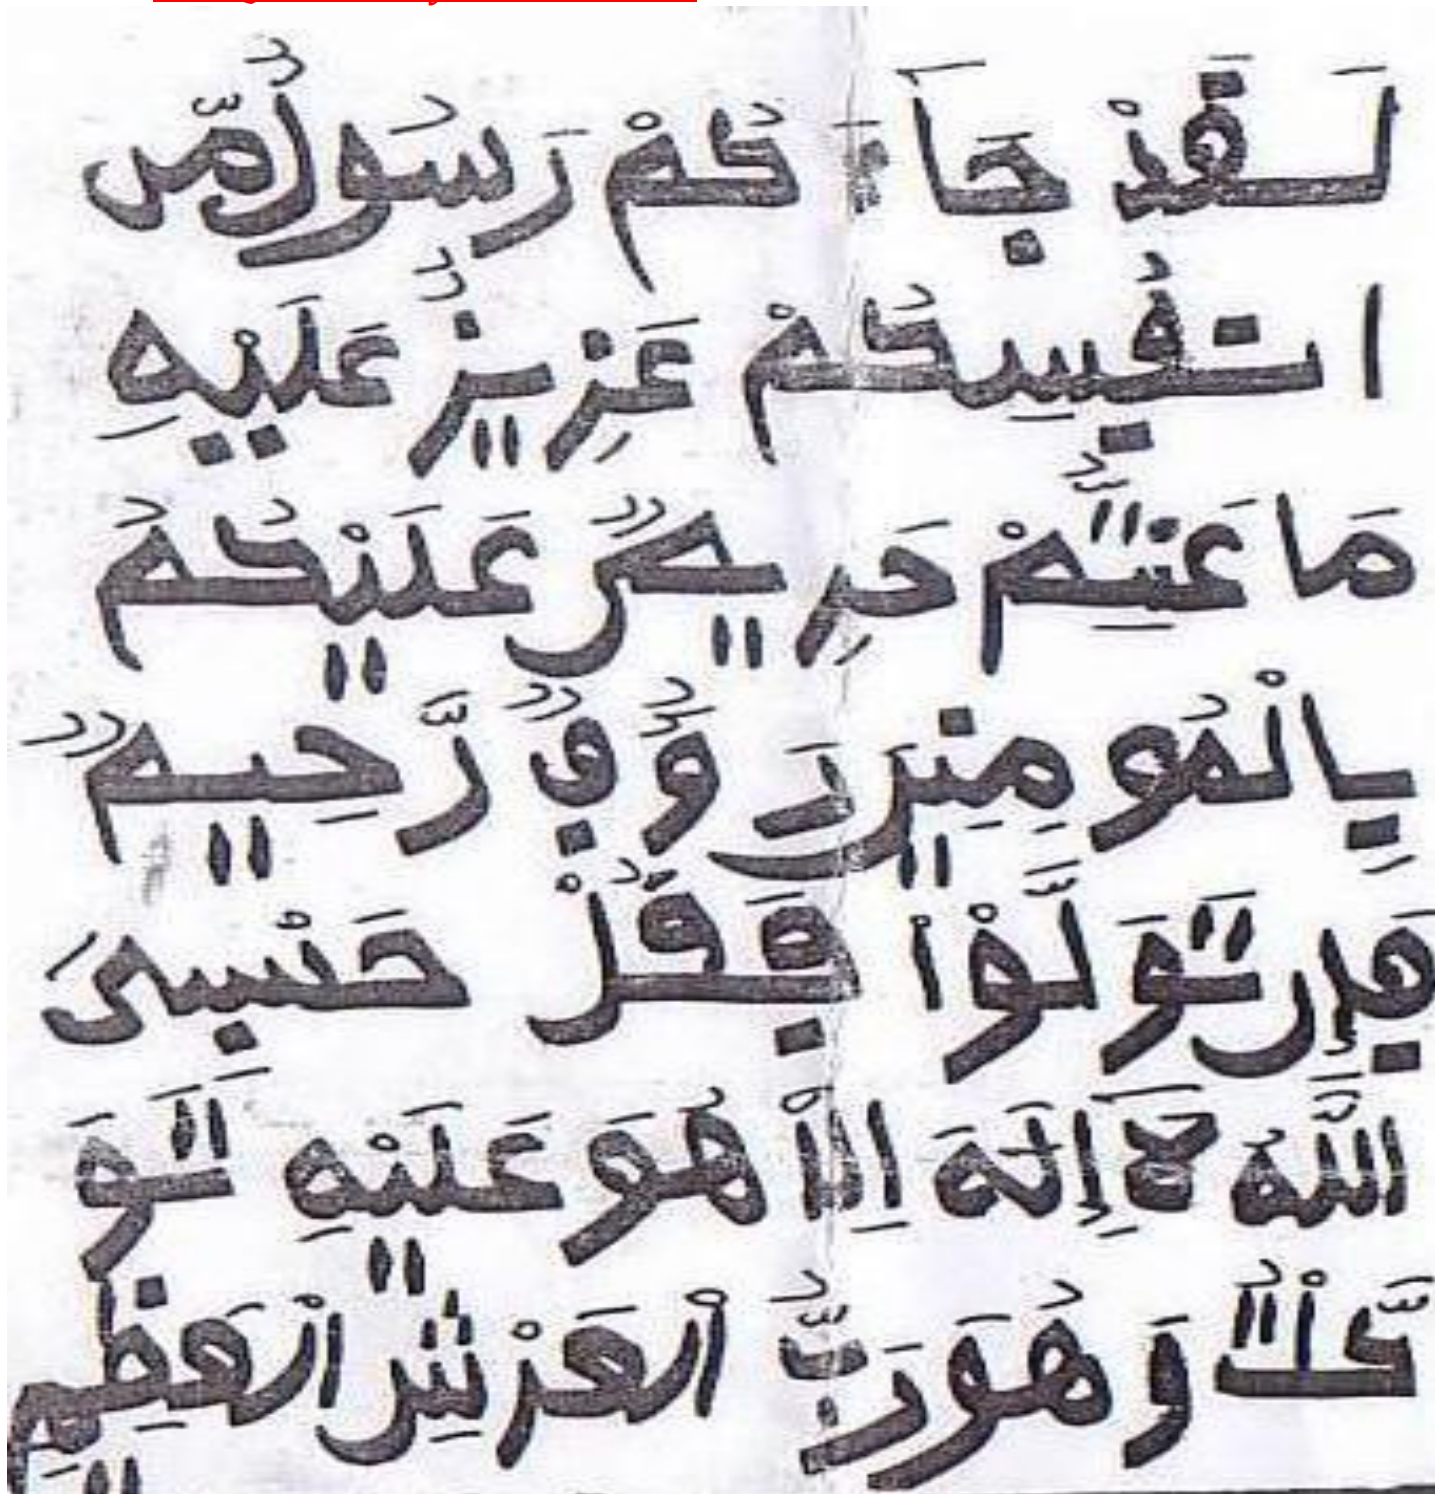 لَقَدْ جَآءَ كُمْ رَسُولٌ مِّن
اَنفُسِكُمْ عَزِيزٌ عَلَيْهِ
مَا عَنِتُّمْ حَرِيصٌ عَلَيْكُمْ
بِالْمُومِنِينَ رَءُوفٌ رَّحِيمٌ
فَإِن تَوَلَّوْاْ فَقُلْ حَسْبِىَ
اللَّهُ لَآ إِلَهَ إِلَّا هُوَ عَلَيْهِ تَوَ
كَّلْتُ وَهُوَ رَبُّ الْعَرْشِ الْعَظِيمِ